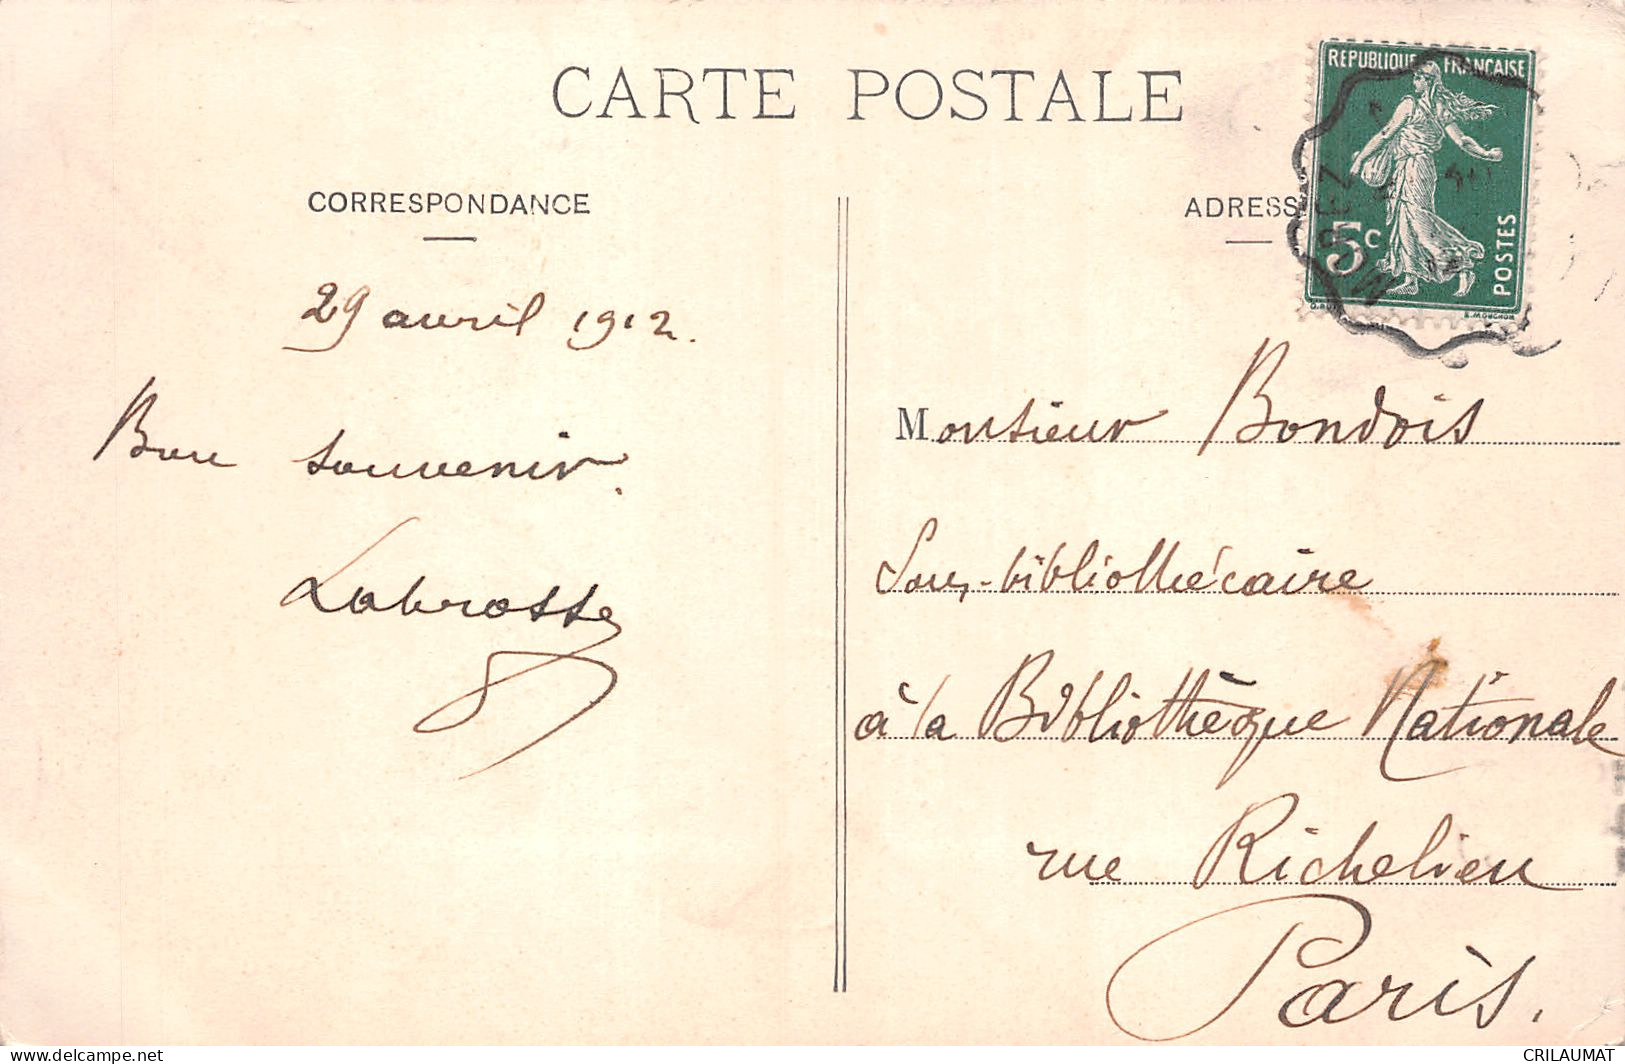 CARTE POSTALE
CORRESPONDANCE
29 avril 1912.
Bon souvenir.
Labrosse
ADRESS
REPUBLIQUE FRANÇAISE
5c
POSTES
Monsieur Bondois
Sous-bibliothécaire
à la Bibliothèque Nationale
rue Richelieu
Paris.
https://www.delcampe.net
CRILAUMAT